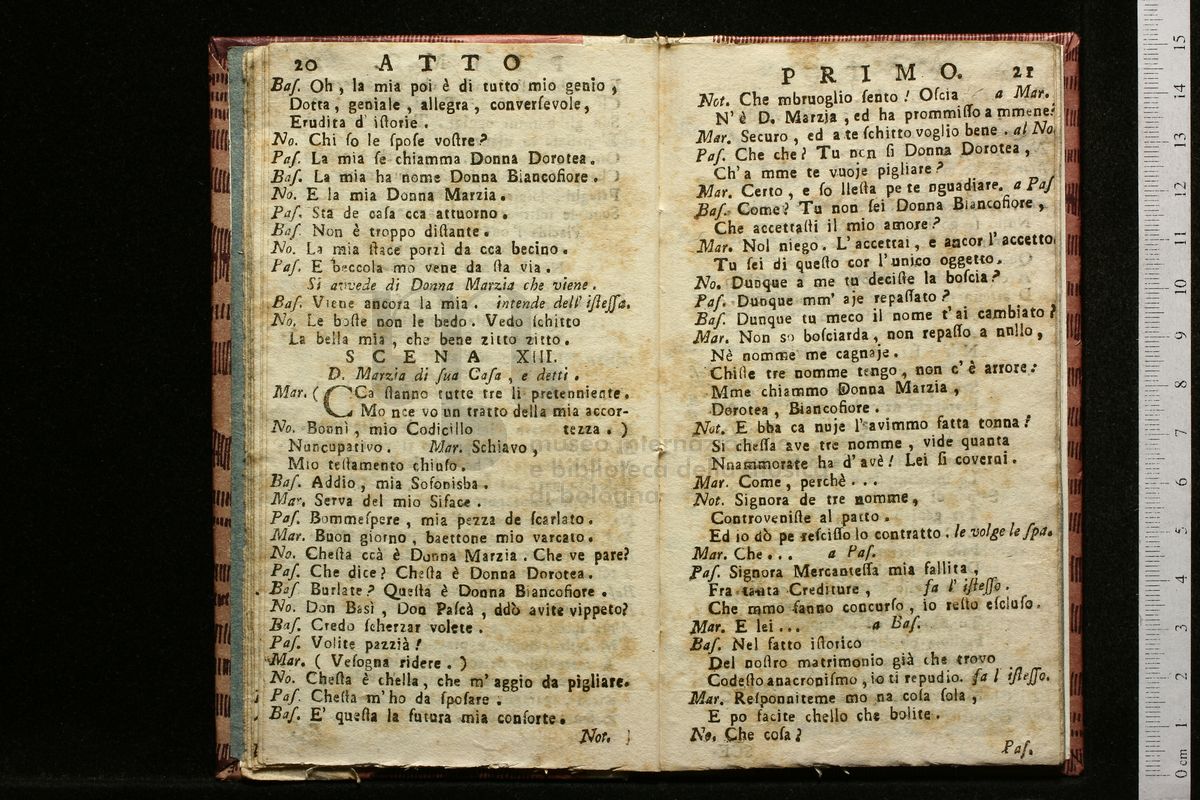 20 ATTO
Baſ. Oh, la mia poi è di tutto mio genio,
Dotta, geniale, allegra, converſevole,
Erudita d' iſtorie.
No. Chi ſo le ſpoſe voſtre?
Paſ. La mia ſe chiamma Donna Dorotea.
Baſ. La mia ha nome Donna Biancofiore.
No. E la mia Donna Marzia.
Paſ. Sta de caſa cca attuorno.
Baſ. Non è troppo diſtante.
No. La mia ſtace porzì da cca becino.
Paſ. E beccola mo vene da ſta via.
Si avvede di Donna Marzia che viene.
Baſ. Viene ancora la mia. intende dell' iſteſſa.
No. Le boſte non le bedo. Vedo ſchitto
La bella mia, che bene zitto zitto.
SCENA XIII.
D. Marzia di ſua Caſa, e detti.
Mar. ( CCa ſtanno tutte tre li pretenniente.
Mo nce vo un tratto della mia accor-
No. Bonnì, mio Codicillo tezza. )
Nuncupativo. Mar. Schiavo,
Mio teſtamento chiuſo.
Baſ. Addio, mia Sofonisba.
Mar. Serva del mio Siface.
Paſ. Bommeſpere, mia pezza de ſcarlato.
Mar. Buon giorno, baettone mio varcato.
No. Cheſta ccà è Donna Marzia. Che ve pare?
Paſ. Che dice? Cheſta è Donna Dorotea.
Baſ Burlate? Queſta è Donna Biancofiore.
No. Don Basì, Don Paſcà, ddò avite vippeto?
Baſ. Credo ſcherzar volete.
Paſ. Volite pazzià!
Mar. ( Veſogna ridere. )
No. Cheſta è chella, che m' aggio da pigliare.
Paſ. Cheſta m' ho da ſpoſare.
Baſ. E' queſta la futura mia conſorte.
Not.
PRIMO. 21
Not. Che mbruoglio ſento! Oſcia a Mar.
N' è D. Marzia, ed ha prommiſſo a mmene?
Mar. Securo, ed a te ſchitto voglio bene. al No
Paſ. Che che? Tu non ſi Donna Dorotea,
Ch' a mme te vuoje pigliare?
Mar. Certo, e ſo lleſta pe te nguadiare. a Paſ
Baſ. Come? Tu non ſei Donna Biancofiore,
Che accettaſti il mio amore?
Mar. Nol niego. L' accettai, e ancor l' accetto
Tu ſei di queſto cor l' unico oggetto.
No. Dunque a me tu deciſte la boſcia?
Paſ. Dunque mm' aje repaſſato?
Baſ. Dunque tu meco il nome t' ai cambiato?
Mar. Non so boſciarda, non repaſſo a nnllo,
Nè nomme me cagnaje.
Chiſte tre nomme tengo, non c' è arrore:
Mme chiammo Donna Marzia,
Dorotea, Biancofiore.
Not. E bba ca nuje l' avimmo fatta tonna!
Si cheſſa ave tre nomme, vide quanta
Nnammorate ha d' avè! Lei ſi coverni.
Mar. Come, perchè...
Not. Signora de tre nomme,
Controveniſte al patto.
Ed io dò pe reſciſſo lo contratto. le volge le ſpa.
Mar. Che... a Paſ.
Paſ. Signora Mercanteſſa mia fallita,
Fra tanta Crediture, fa l' iſteſſo.
Che mmo fanno concurſo, io reſto eſcluſo.
Mar. E lei... a Baſ.
Baſ. Nel fatto iſtorico
Del noſtro matrimonio già che trovo
Codeſto anacroniſmo, io ti repudio. fa l iſteſſo.
Mar. Reſponniteme mo na coſa ſola,
E po facite chello che bolite.
No. Che coſa?
Paſ.
museo internaz
e biblioteca della musica
di bologna
0 cm 1 2 3 4 5 6 7 8 9 10 11 12 13 14 15